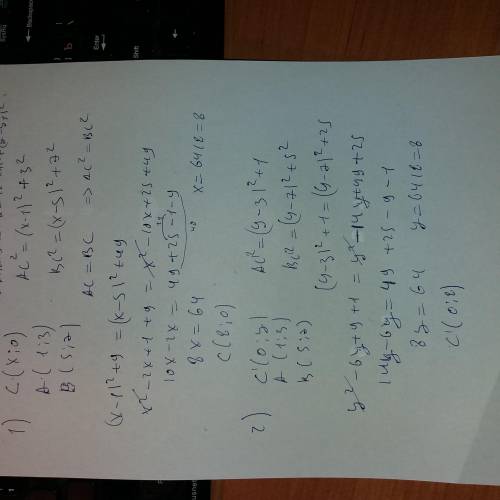 1) C (x;0)
A (1;3)
B (5;7)
AC² = (x-1)² + 3²
BC² = (x-5)² + 7²
AC = BC => AC² = BC²
(x-1)² + 9 = (x-5)² + 49
x² - 2x + 1 + 9 = x² - 10x + 25 + 49
10x - 2x = 49 + 25 - 1 - 9
8x = 64
x = 64/8 = 8
C (8;0)
2) C' (0;y)
A (1;3)
B (5;7)
AC² = (y-3)² + 1
BC² = (y-7)² + 5²
(y-3)² + 1 = (y-7)² + 25
y² - 6y + 9 + 1 = y² - 14y + 49 + 25
14y - 6y = 49 + 25 - 9 - 1
8y = 64
y = 64/8 = 8
C' (0;8)